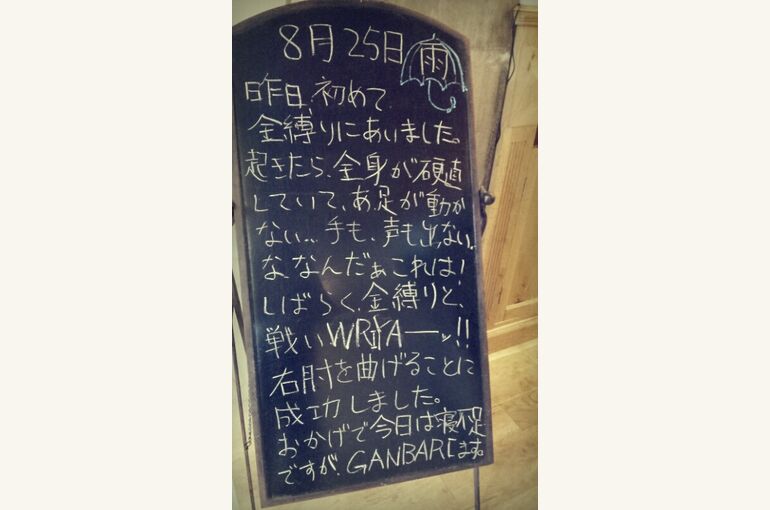 8月25日 雨
昨日、初めて、
金縛りにあいました。
起きたら、全身が硬直
していて、あ、足が動か
ない… 手も、声も出ない。
な、なんだぁこれは!
しばらく、金縛りと、
戦いWRYYAーッ!!
右肘を曲げることに
成功しました。
おかげで今日は寝不足
ですが、GANBARIます。